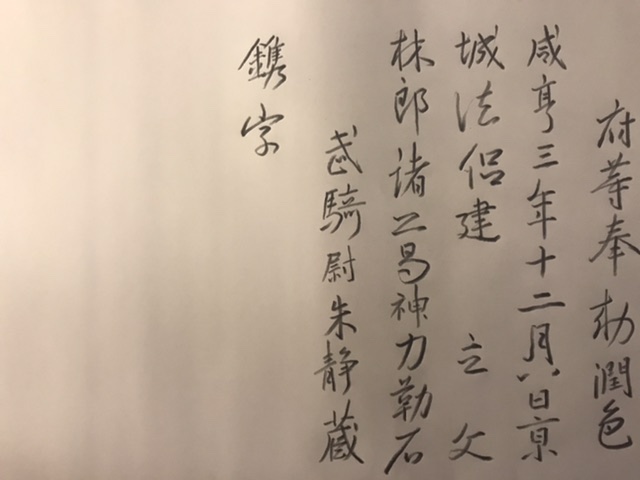 府等奉勅潤色
咸亨三年十二月八日京
城法侶建 立 文
林郎諸葛神力勒石
武騎尉朱静蔵
鐫字